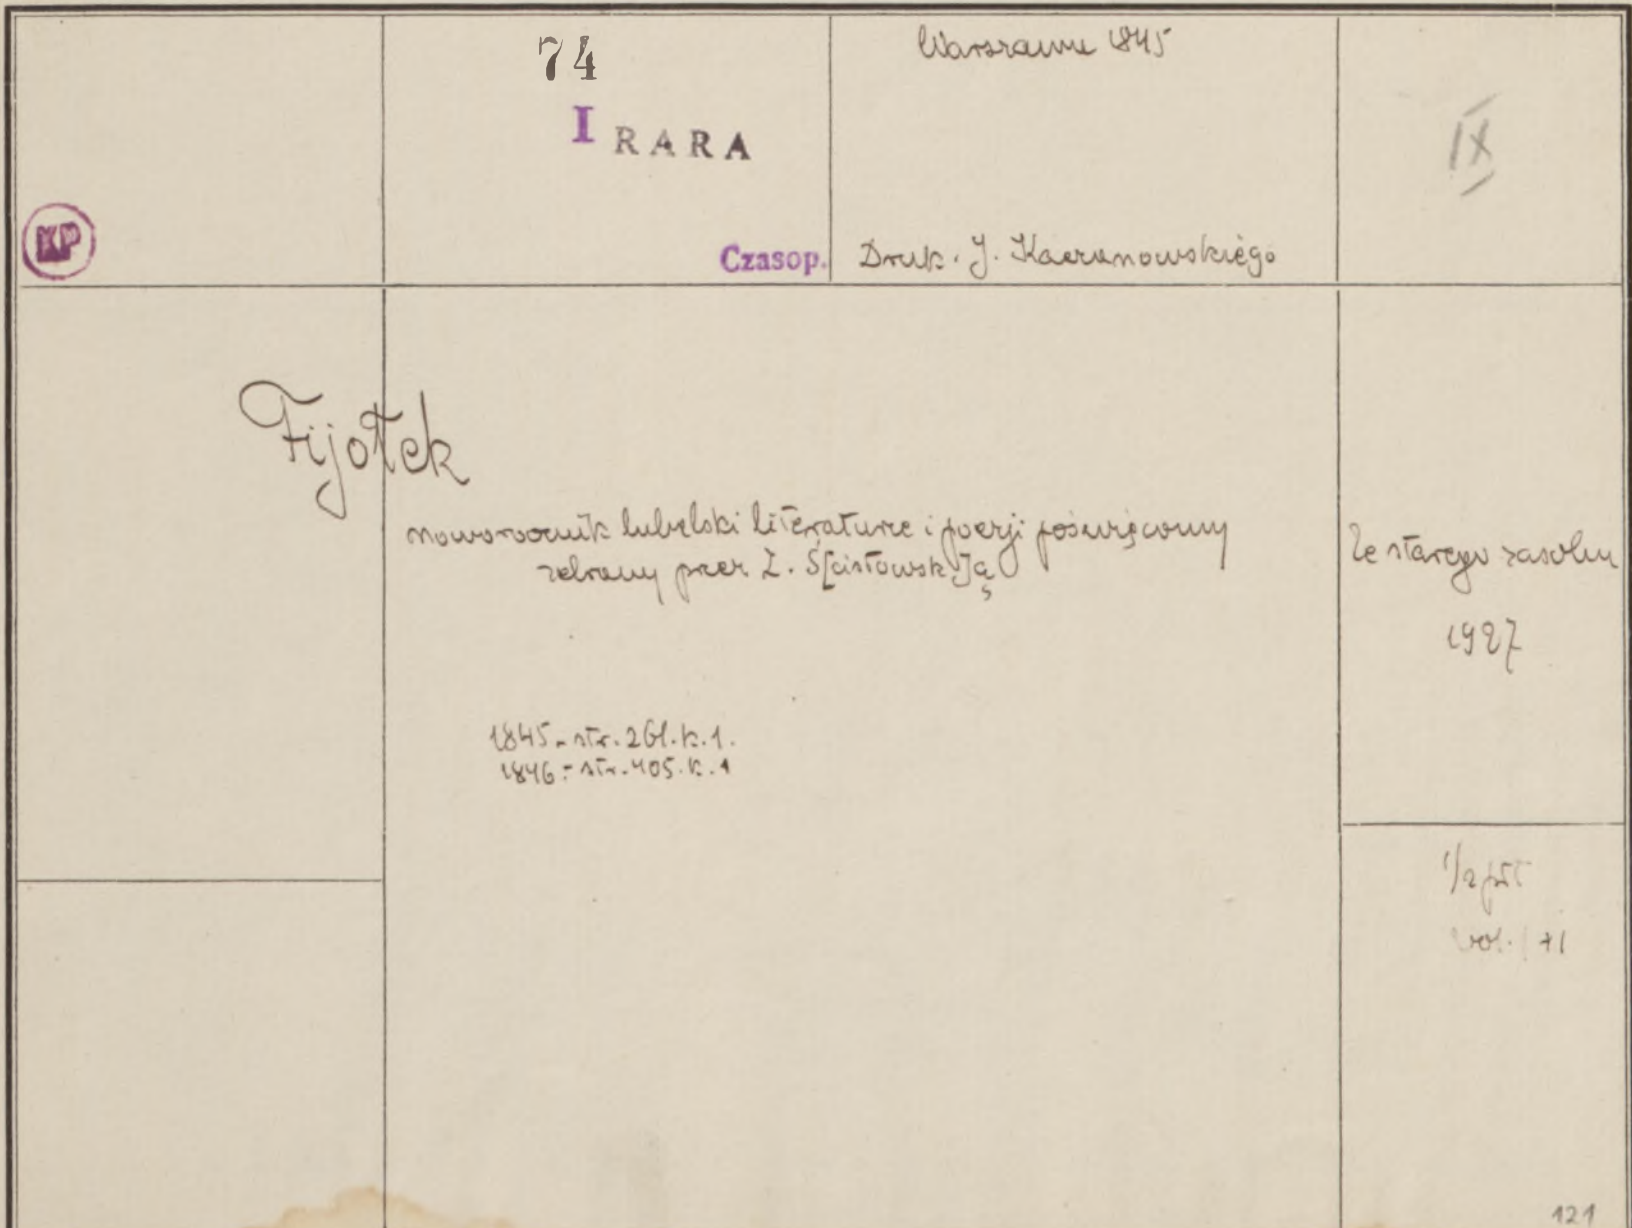 74
I RARA
KP
Czasop.
Warszawa 1845
Druk. J. Kaczanowskiego
IX
Fijołek
noworocznik lubelski literaturze i poezji poświęcony
zebrany przez Z. Ś[cisłowsk]ą
Ze starego zasobu
1927
1845 - str. 261. k. 1.
1846 - str. 405. k. 1
1/2 płt
vol. 1 +1
121